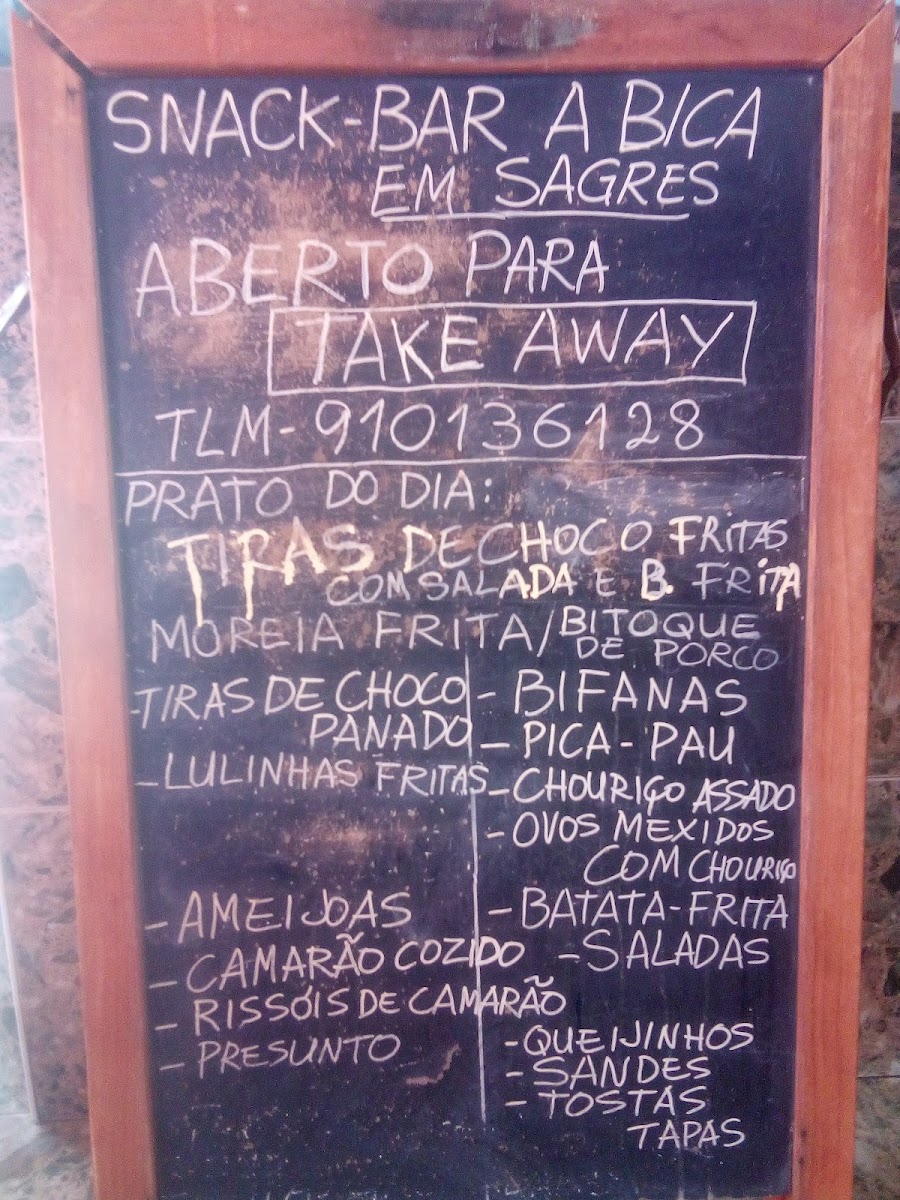 SNACK-BAR A BICA
EM SAGRES
ABERTO PARA
TAKE AWAY
TLM-910136128
PRATO DO DIA:
TIRAS DE CHOCO FRITAS
COM SALADA E B. FRITA
MOREIA FRITA/BITOQUE
DE PORCO
-TIRAS DE CHOCO
PANADO
-LULINHAS FRITAS
-AMEIJOAS
-CAMARÃO COZIDO
-RISSÓIS DE CAMARÃO
-PRESUNTO
-BIFANAS
-PICA-PAU
-CHOURIÇO ASSADO
-OVOS MEXIDOS
COM CHOURIÇO
-BATATA-FRITA
-SALADAS
-QUEIJINHOS
-SANDES
-TOSTAS
TAPAS